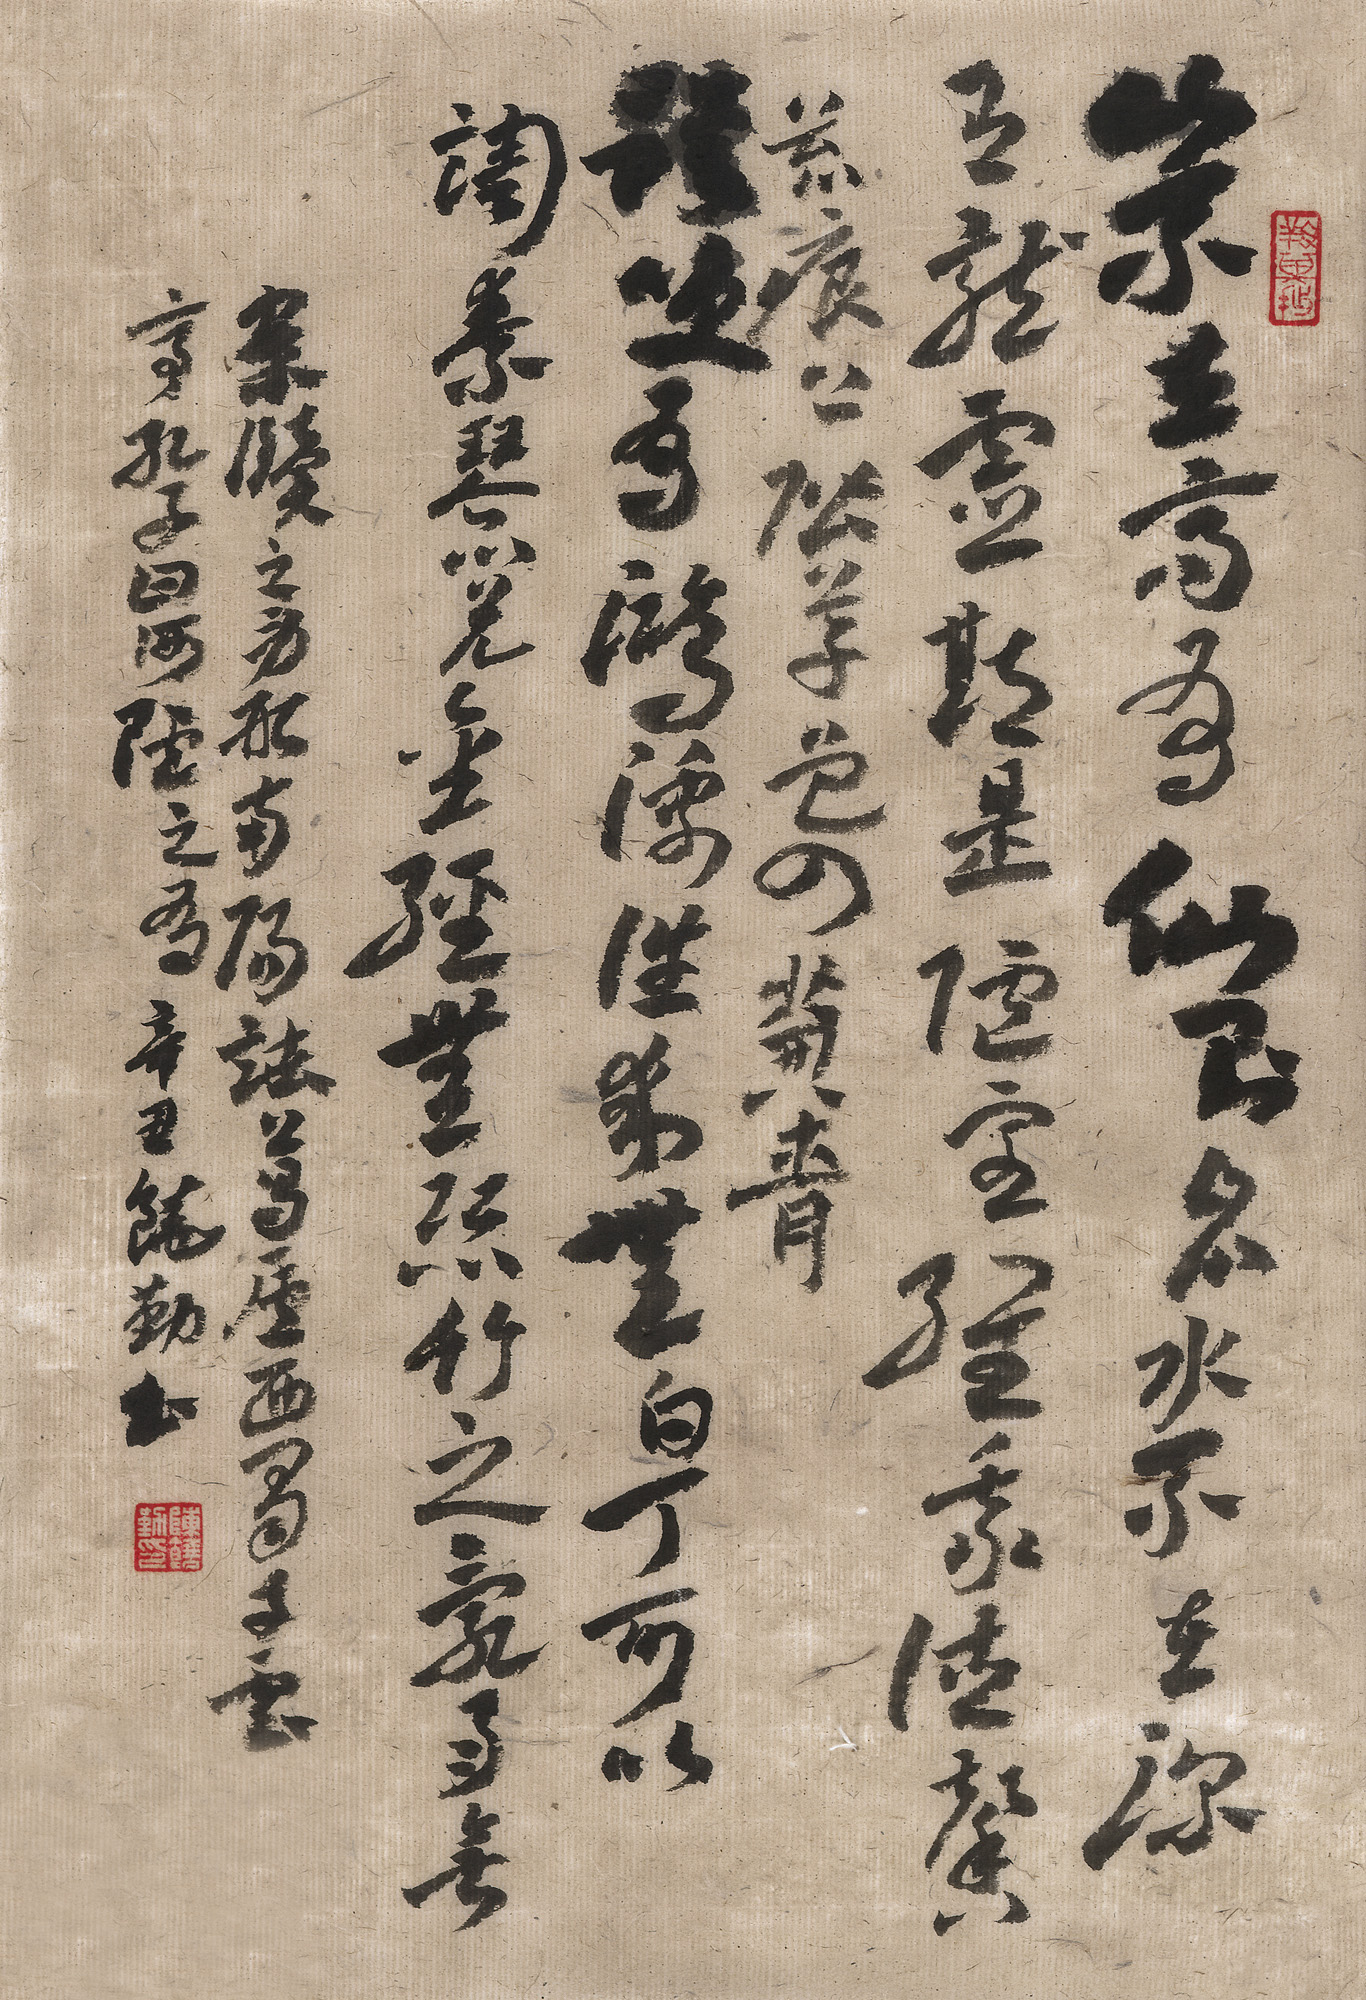 山不在高有仙則名水不在深
有龍靈斯是陋室維我德馨
苔痕上階草色入簾青
談笑有鴻儒往來無白丁可以
調素琴閱金經無絲竹之亂耳無
案牘之勞形南陽諸葛廬西蜀子雲
亭孔子曰何陋之有辛丑饒勤書
陳饒勤印